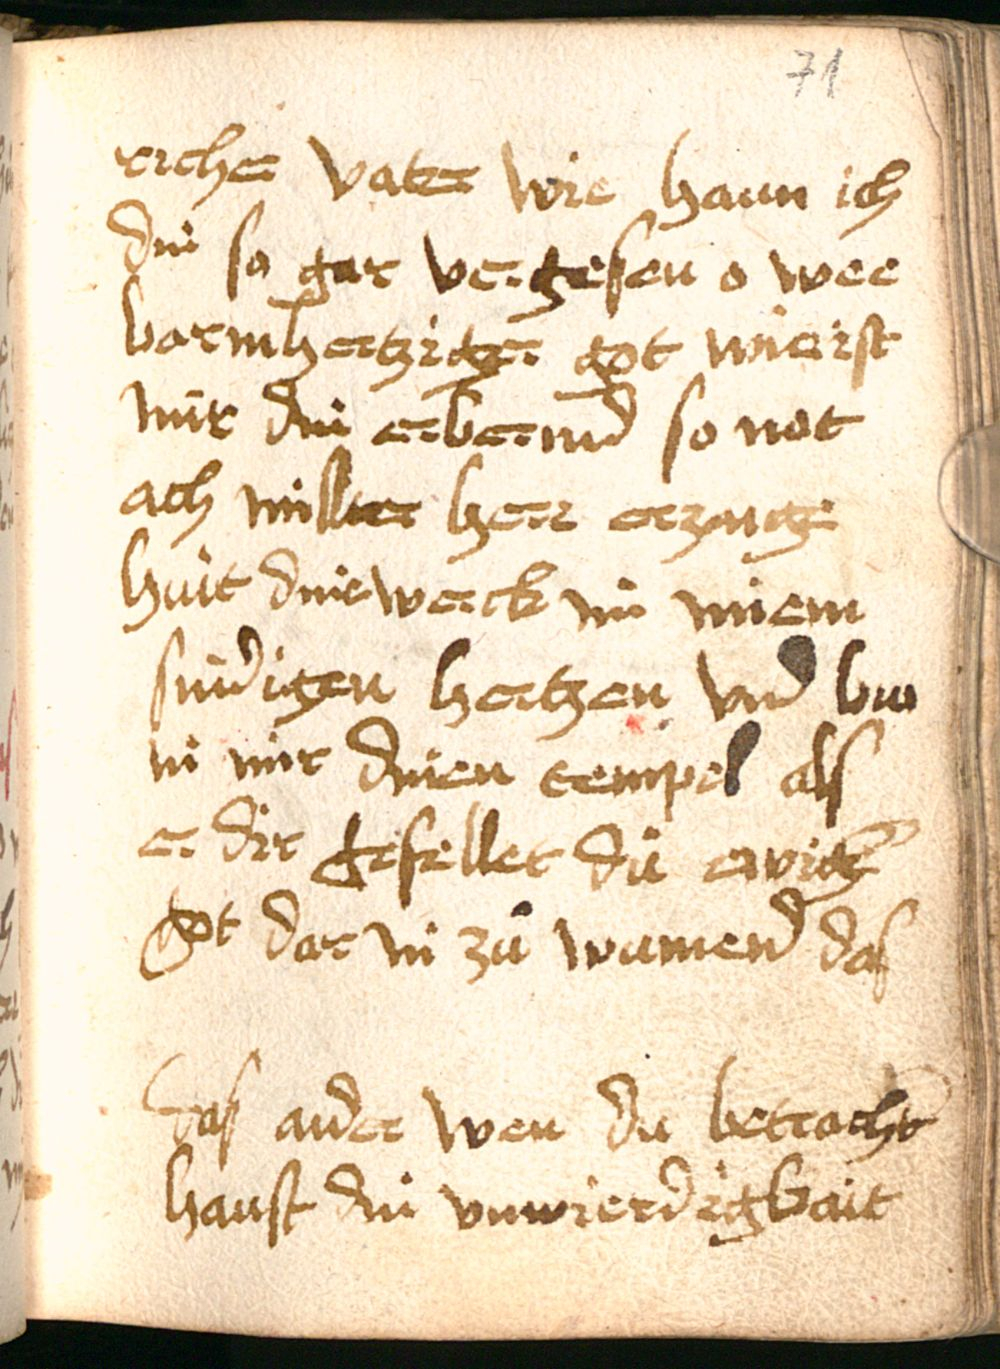 71
richer vater wie haun ich
din so gar vergesen o wee
barmhertziger got wie ist
mir din erbermd so not
ach millter herr erzaige
hüit dine werck in minem
sündigen hertzen vnd bw
in mir dinen tempel als
er dir gefellet dü ewiger
got dar in zü wunend das
Das ander wen du betracht
haust din vnwierdigkait